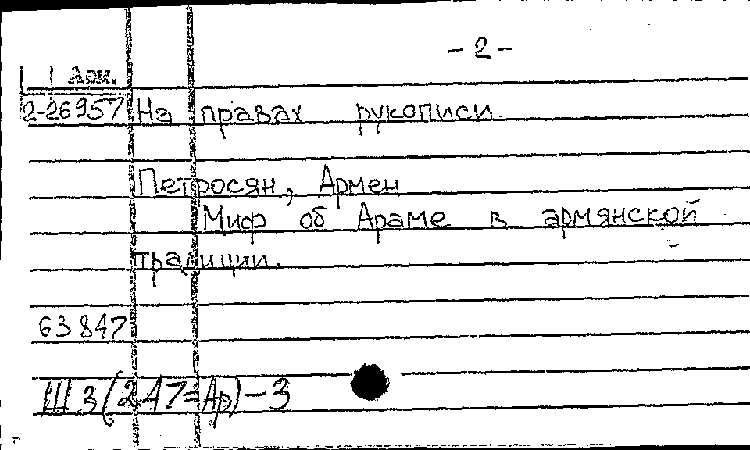 - 2 -
Арм.
2-26957 На правах рукописи
Петросян, Армен
Миф об Араме в армянской
традиции.
63847
Ш3(247=Ар)-3